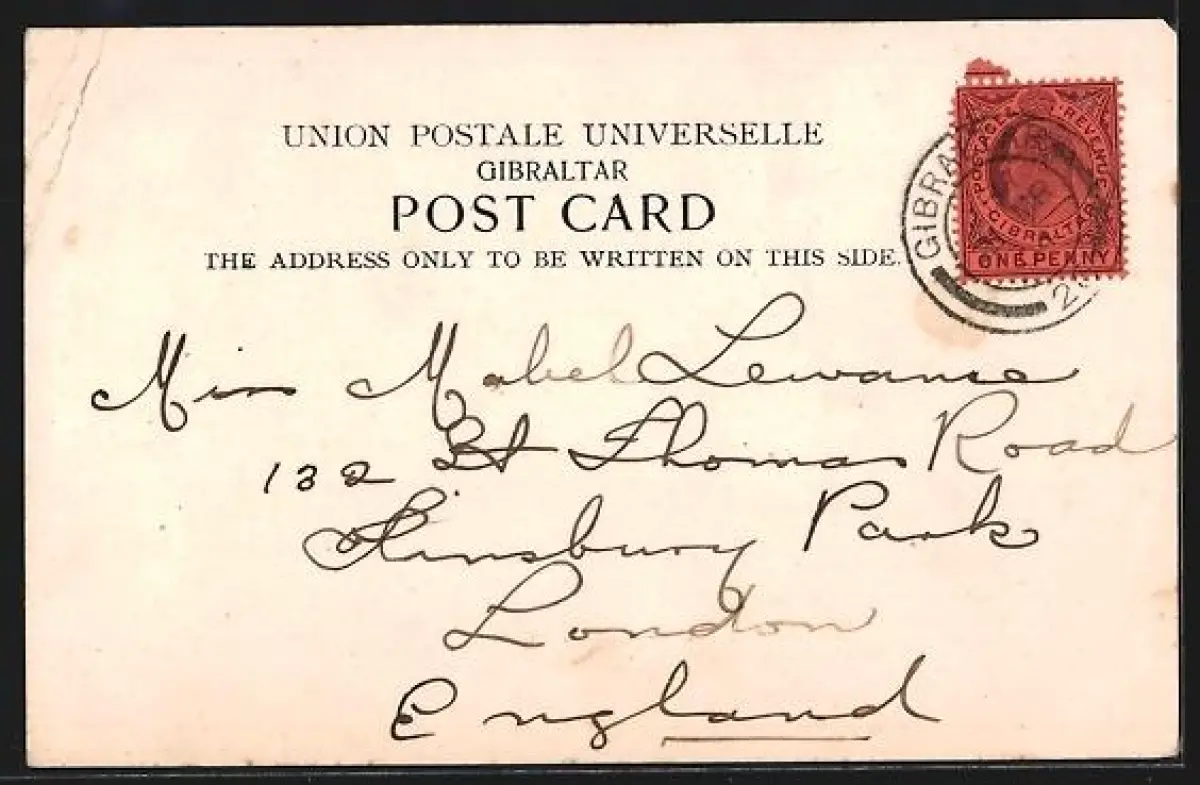 UNION POSTALE UNIVERSELLE
GIBRALTAR
POST CARD
THE ADDRESS ONLY TO BE WRITTEN ON THIS SIDE.
POSTAGE & REVENUE
GIBRALTAR
ONE PENNY
GIBRA
Miss Mabel Lewance
132 St Thomas Road
Finsbury Park
London
England